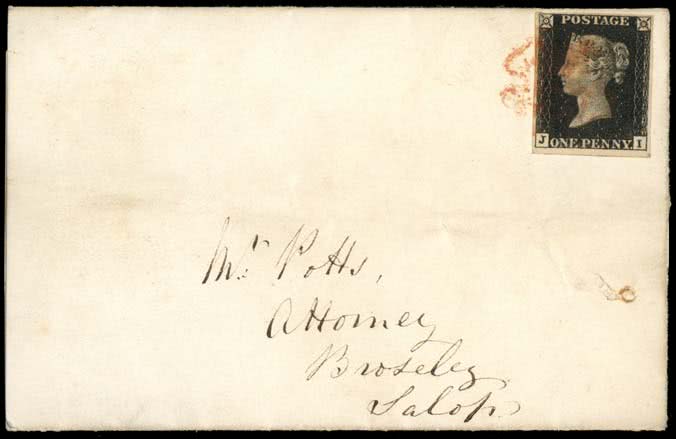 POSTAGE
J ONE PENNY I
Mr. Potts,
Attorney
Broseley
Salop